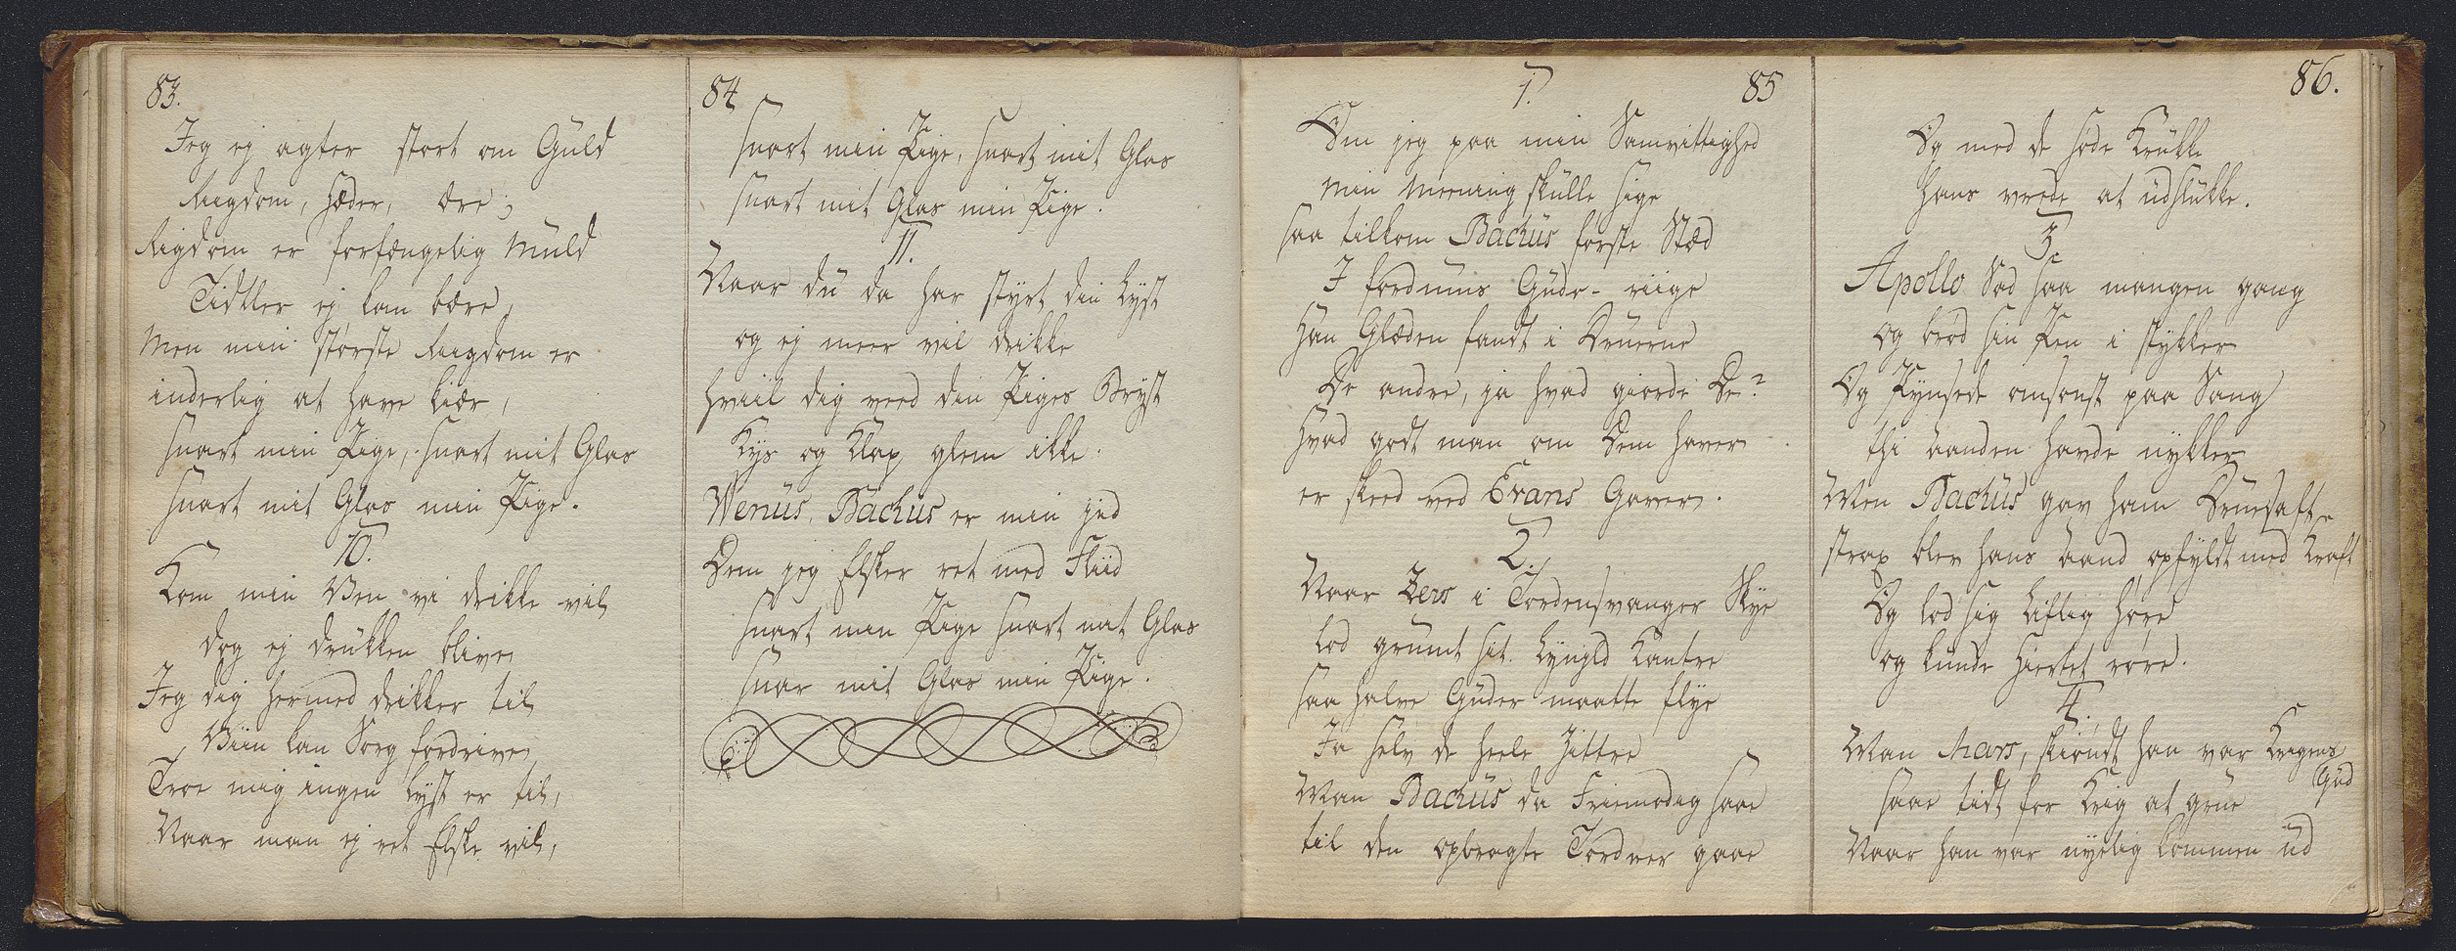 83.
Jeg ej agter stort om Guld
Riigdom, Hæder, ære;
Rigdom er forfængelig Muld
Tidtler ej kan bære,
Men min største Riigdom er
inderlig at have kiær,
snart min Pige, snart mit Glas
snart mit Glas min Pige.
10.
Kom min Ven vi drikke vil
dog ej drukken blive
Jeg dig hermed drikker til
Viin kan Sorg fordrive
Troe mig ingen Lyst er til,
Naar man ej ret Elske vil,
84
snart min Pige, snart mit Glas
snart mit Glas min Pige.
11.
Naar du da har styrt din Lyst
og ej meer vil drikke
hviil dig veed din Piges Bryst
Kys og Klap glem ikke.
Wenus, Bachus er min
Dem jeg Elsker ret med Fliid
snart min Pige snart mit Glas
snar mit Glas min Pige.
1.
85
Om jeg paa min Samvittighed
min Meening skulle sige
saa tilkom Bachus første Stæd
I fordums Gude-riige
Han Glæden fandt i Druerne
De andre, ja hvad giorde De?
Hvad godt man om Dem haver
er skeed ved Evans Gaver.
2.
Naar Zevs i Tordensvanger Skye
lod grumt sit Lynild Kantre
saa halve Guder maatte flye
Ja selv de heele Zittre
Man Bachus da Friemodig saae
til den opbragte Tordner gaae
86.
Og med de søde Krukke
hans vrede at udslukke.
3
Apollo Sad saa mangen gang
og brød sin Pen i stykker
Og Pynsede omsonst paa Sang
thi aanden havde nykker
Men Bachus gav ham Druesaft
strax blev hans aand opfyldt med Kraft
Og lod sig liflig høre
og kunde Hiertet røre.
4.
Man Mars, skiøndt han var Krigens
Gud
saae tidt for Krig at grue
Naar han var nyelig kommen ud